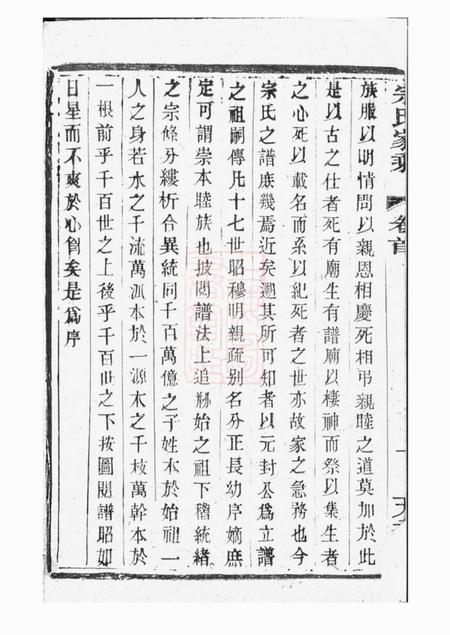 宗氏家乘
卷首
族服以明情問以親恩相慶死相弔親睦之道莫加於此
是以古之仕者死有廟生有譜廟以棲神而祭以集生者
之心死以載名而系以紀死者之世亦故家之急務也今
宗氏之譜庶幾焉近矣遡其所可知者以元封公爲立譜
之祖嗣傳凡十七世昭穆明親疏别名分正長幼序嫡庶
定可謂崇本睦族也披閱譜法上追刱始之祖下稽統緒
之宗條分縷析合異統同千百萬億之子姓本於始祖一
人之身若水之千流萬派本於一源木之千枝萬幹本於
一根前乎千百世之上後乎千百世之下按圖閱譜昭如
日星而不爽於心胷矣是爲序